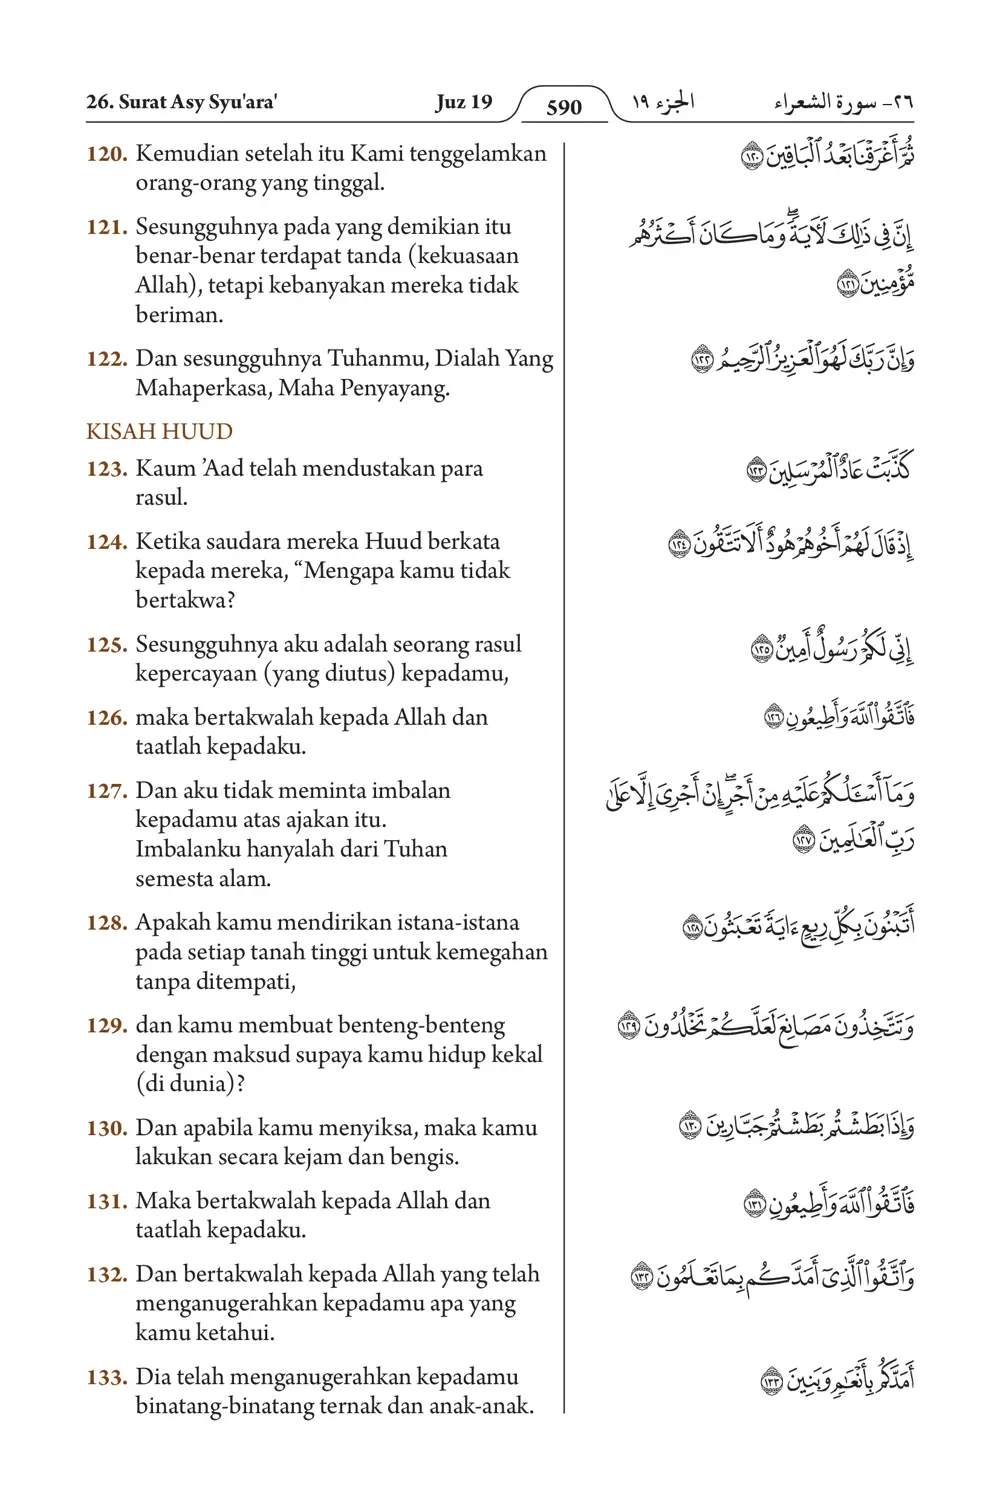 26. Surat Asy Syu'ara' Juz 19 590 الجزء ١٩ ٢٦- سورة الشعراء
120. Kemudian setelah itu Kami tenggelamkan
orang-orang yang tinggal.
ثُمَّ أَغْرَقْنَا بَعْدُ ٱلْبَاقِينَ ١٢٠
121. Sesungguhnya pada yang demikian itu
benar-benar terdapat tanda (kekuasaan
Allah), tetapi kebanyakan mereka tidak
beriman.
إِنَّ فِى ذَٰلِكَ لَـَٔايَةً ۖ وَمَا كَانَ أَكْثَرُهُم
مُّؤْمِنِينَ ١٢١
122. Dan sesungguhnya Tuhanmu, Dialah Yang
Mahaperkasa, Maha Penyayang.
وَإِنَّ رَبَّكَ لَهُوَ ٱلْعَزِيزُ ٱلرَّحِيمُ ١٢٢
KISAH HUUD
123. Kaum ’Aad telah mendustakan para
rasul.
كَذَّبَتْ عَادٌ ٱلْمُرْسَلِينَ ١٢٣
124. Ketika saudara mereka Huud berkata
kepada mereka, “Mengapa kamu tidak
bertakwa?
إِذْ قَالَ لَهُمْ أَخُوهُمْ هُودٌ أَلَا تَتَّقُونَ ١٢٤
125. Sesungguhnya aku adalah seorang rasul
kepercayaan (yang diutus) kepadamu,
إِنِّى لَكُمْ رَسُولٌ أَمِينٌ ١٢٥
126. maka bertakwalah kepada Allah dan
taatlah kepadaku.
فَٱتَّقُوا۟ ٱللَّهَ وَأَطِيعُونِ ١٢٦
127. Dan aku tidak meminta imbalan
kepadamu atas ajakan itu.
Imbalanku hanyalah dari Tuhan
semesta alam.
وَمَآ أَسْـَٔلُكُمْ عَلَيْهِ مِنْ أَجْرٍ ۖ إِنْ أَجْرِىَ إِلَّا عَلَىٰ
رَبِّ ٱلْعَـٰلَمِينَ ١٢٧
128. Apakah kamu mendirikan istana-istana
pada setiap tanah tinggi untuk kemegahan
tanpa ditempati,
أَتَبْنُونَ بِكُلِّ رِيعٍ ءَايَةً تَعْبَثُونَ ١٢٨
129. dan kamu membuat benteng-benteng
dengan maksud supaya kamu hidup kekal
(di dunia)?
وَتَتَّخِذُونَ مَصَانِعَ لَعَلَّكُمْ تَخْلُدُونَ ١٢٩
130. Dan apabila kamu menyiksa, maka kamu
lakukan secara kejam dan bengis.
وَإِذَا بَطَشْتُم بَطَشْتُمْ جَبَّارِينَ ١٣٠
131. Maka bertakwalah kepada Allah dan
taatlah kepadaku.
فَٱتَّقُوا۟ ٱللَّهَ وَأَطِيعُونِ ١٣١
132. Dan bertakwalah kepada Allah yang telah
menganugerahkan kepadamu apa yang
kamu ketahui.
وَٱتَّقُوا۟ ٱلَّذِىٓ أَمَدَّكُم بِمَا تَعْلَمُونَ ١٣٢
133. Dia telah menganugerahkan kepadamu
binatang-binatang ternak dan anak-anak.
أَمَدَّكُم بِأَنْعَـٰمٍ وَبَنِينَ ١٣٣